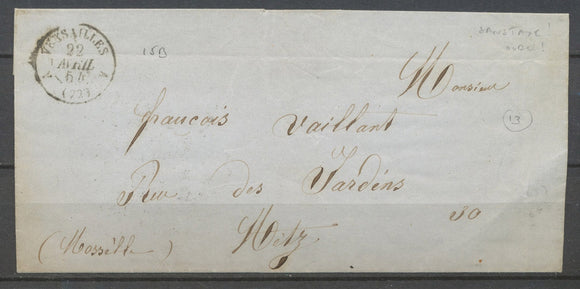 VERSAILLES
22
AVRIL
54
(72)
15B
SANS TAXE!
Monsieur
13
francois Vaillant
Rue des Jardins
30
Metz
(Mosselle)